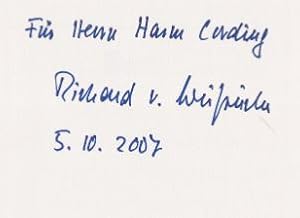 Für Herrn Harm Cording
Richard v. Weizsäcker
5. 10. 2007